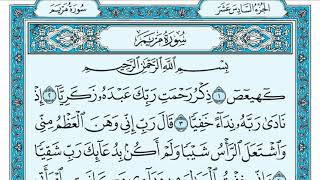 سُورَةُ مَرْيَمَ الجُزْءُ السَّادِسَ عَشَرَ
سُورَةُ مَرْيَمَ
بِسْمِ اللَّهِ الرَّحْمَٰنِ الرَّحِيمِ
كٓهيعٓصٓ ١ ذِكْرُ رَحْمَتِ رَبِّكَ عَبْدَهُۥ زَكَرِيَّآ ٢ إِذْ
نَادَىٰ رَبَّهُۥ نِدَآءً خَفِيًّا ٣ قَالَ رَبِّ إِنِّى وَهَنَ ٱلْعَظْمُ مِنِّى
وَٱشْتَعَلَ ٱلرَّأْسُ شَيْبًا وَلَمْ أَكُنۢ بِدُعَآئِكَ رَبِّ شَقِيًّا